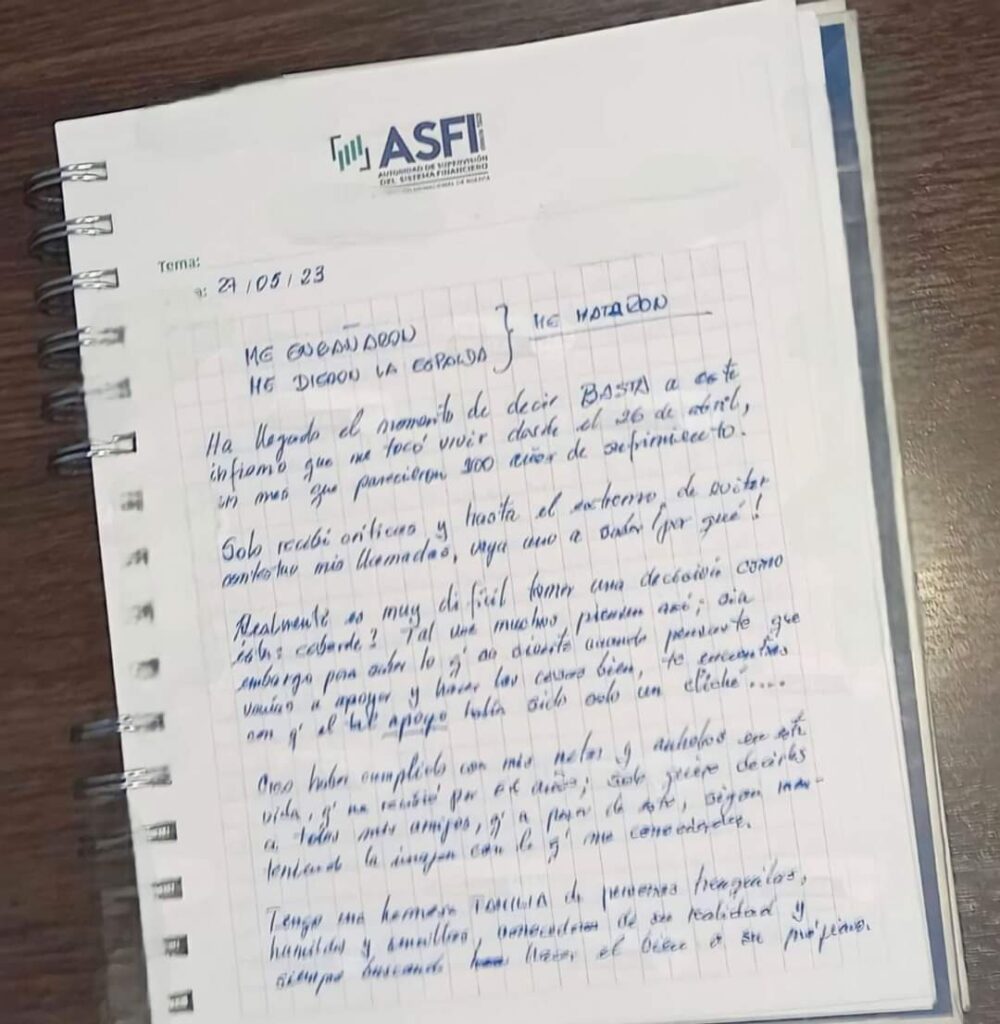 ASFI
AUTORIDAD DE SUPERVISIÓN
DEL SISTEMA FINANCIERO
Tema:
a: 27/05/23
ME ENGAÑARON
ME DIERON LA ESPALDA } ME MATARON
Ha llegado el momento de decir BASTA a este
infierno que me tocó vivir desde el 26 de abril,
un mes que parecieron 100 años de sufrimiento.
Solo recibí críticas y hasta el extremo de evitar
contestar mis llamadas, vaya uno a saber ¡por qué!
Realmente es muy difícil tomar una decisión como
ésta; cobarde? Tal vez muchos piensen así; sin
embargo para saber lo q' se siente cuando pensaste que
vas a apoyar y hacer las cosas bien, te encuentras
con q' el tal apoyo había sido solo un cliché....
Creo haber cumplido con mis metas y anhelos en esta
vida, q' me recibió por años; solo quiero decirles
a todos mis amigos, q' a pesar de esto, sigan man-
teniendo la imagen con la q' me conocieron.
Tengo una hermosa FAMILIA de personas tranquilas,
humildes y sencillas de su realidad y
siempre buscando hacer el bien a su prójimo.